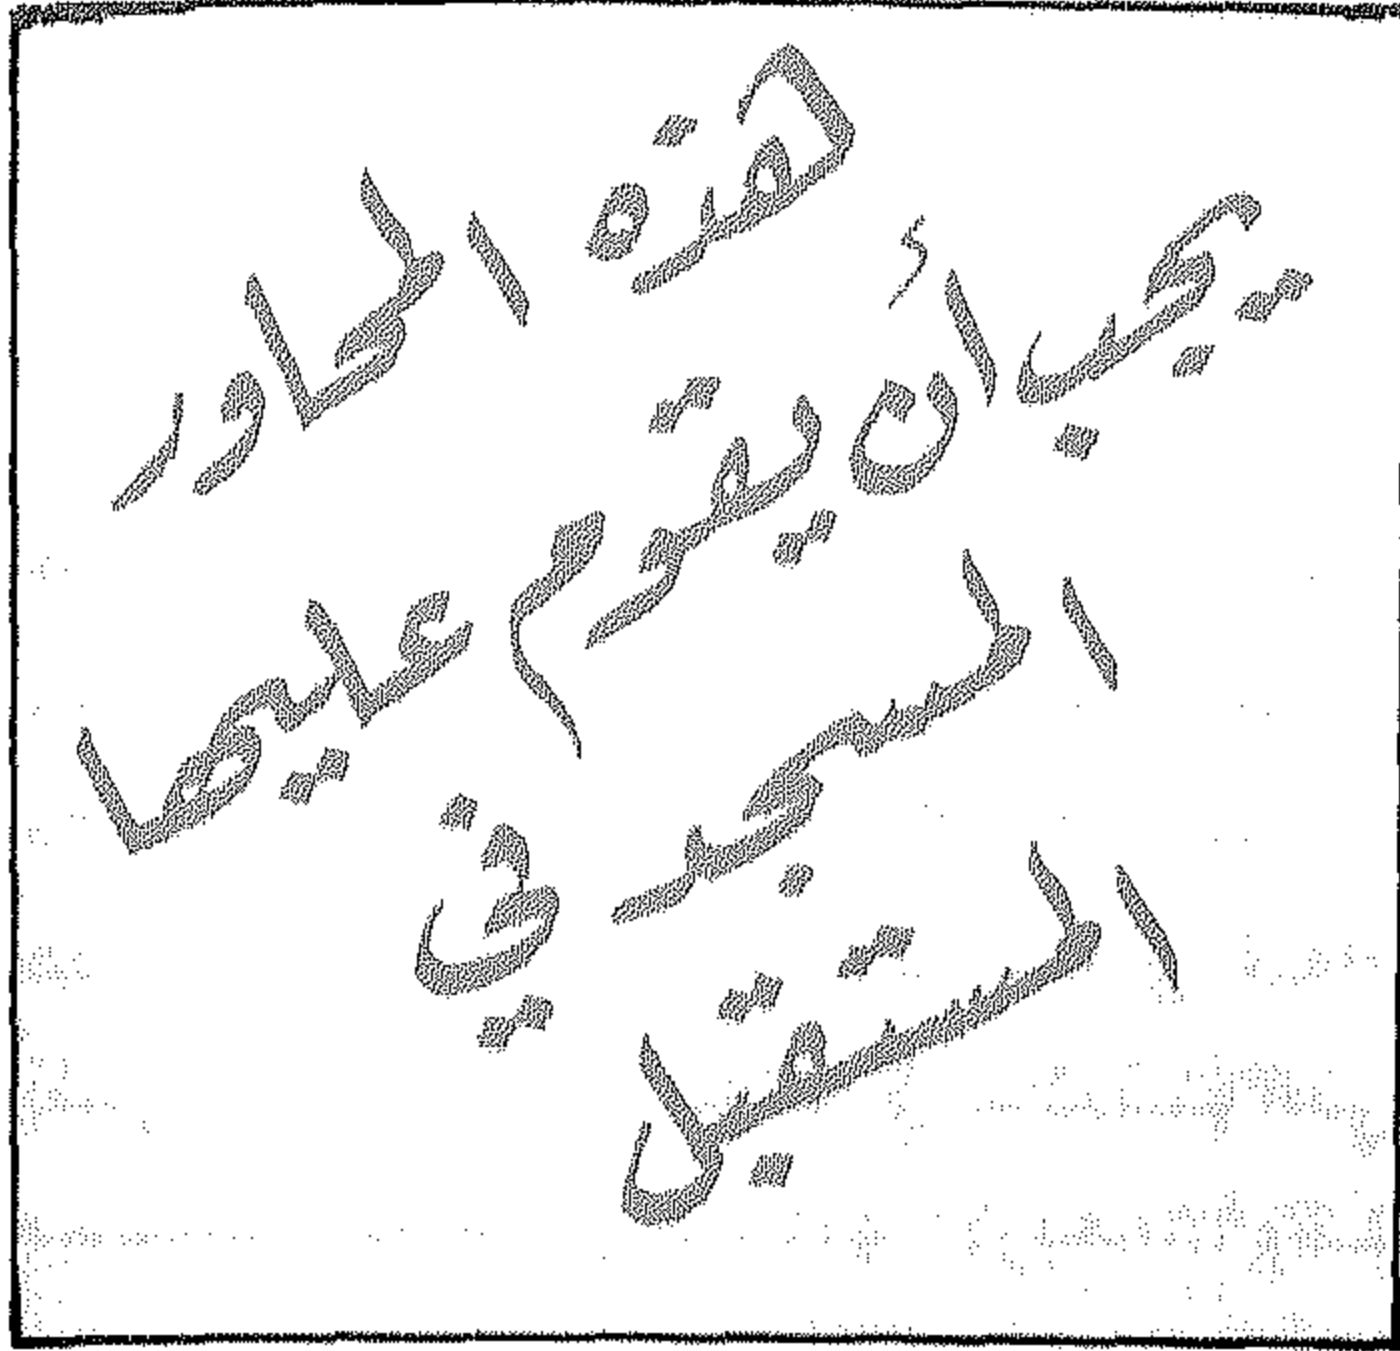 هذه المحاور
يجب أن يقوم عليها
المسجد في
المستقبل